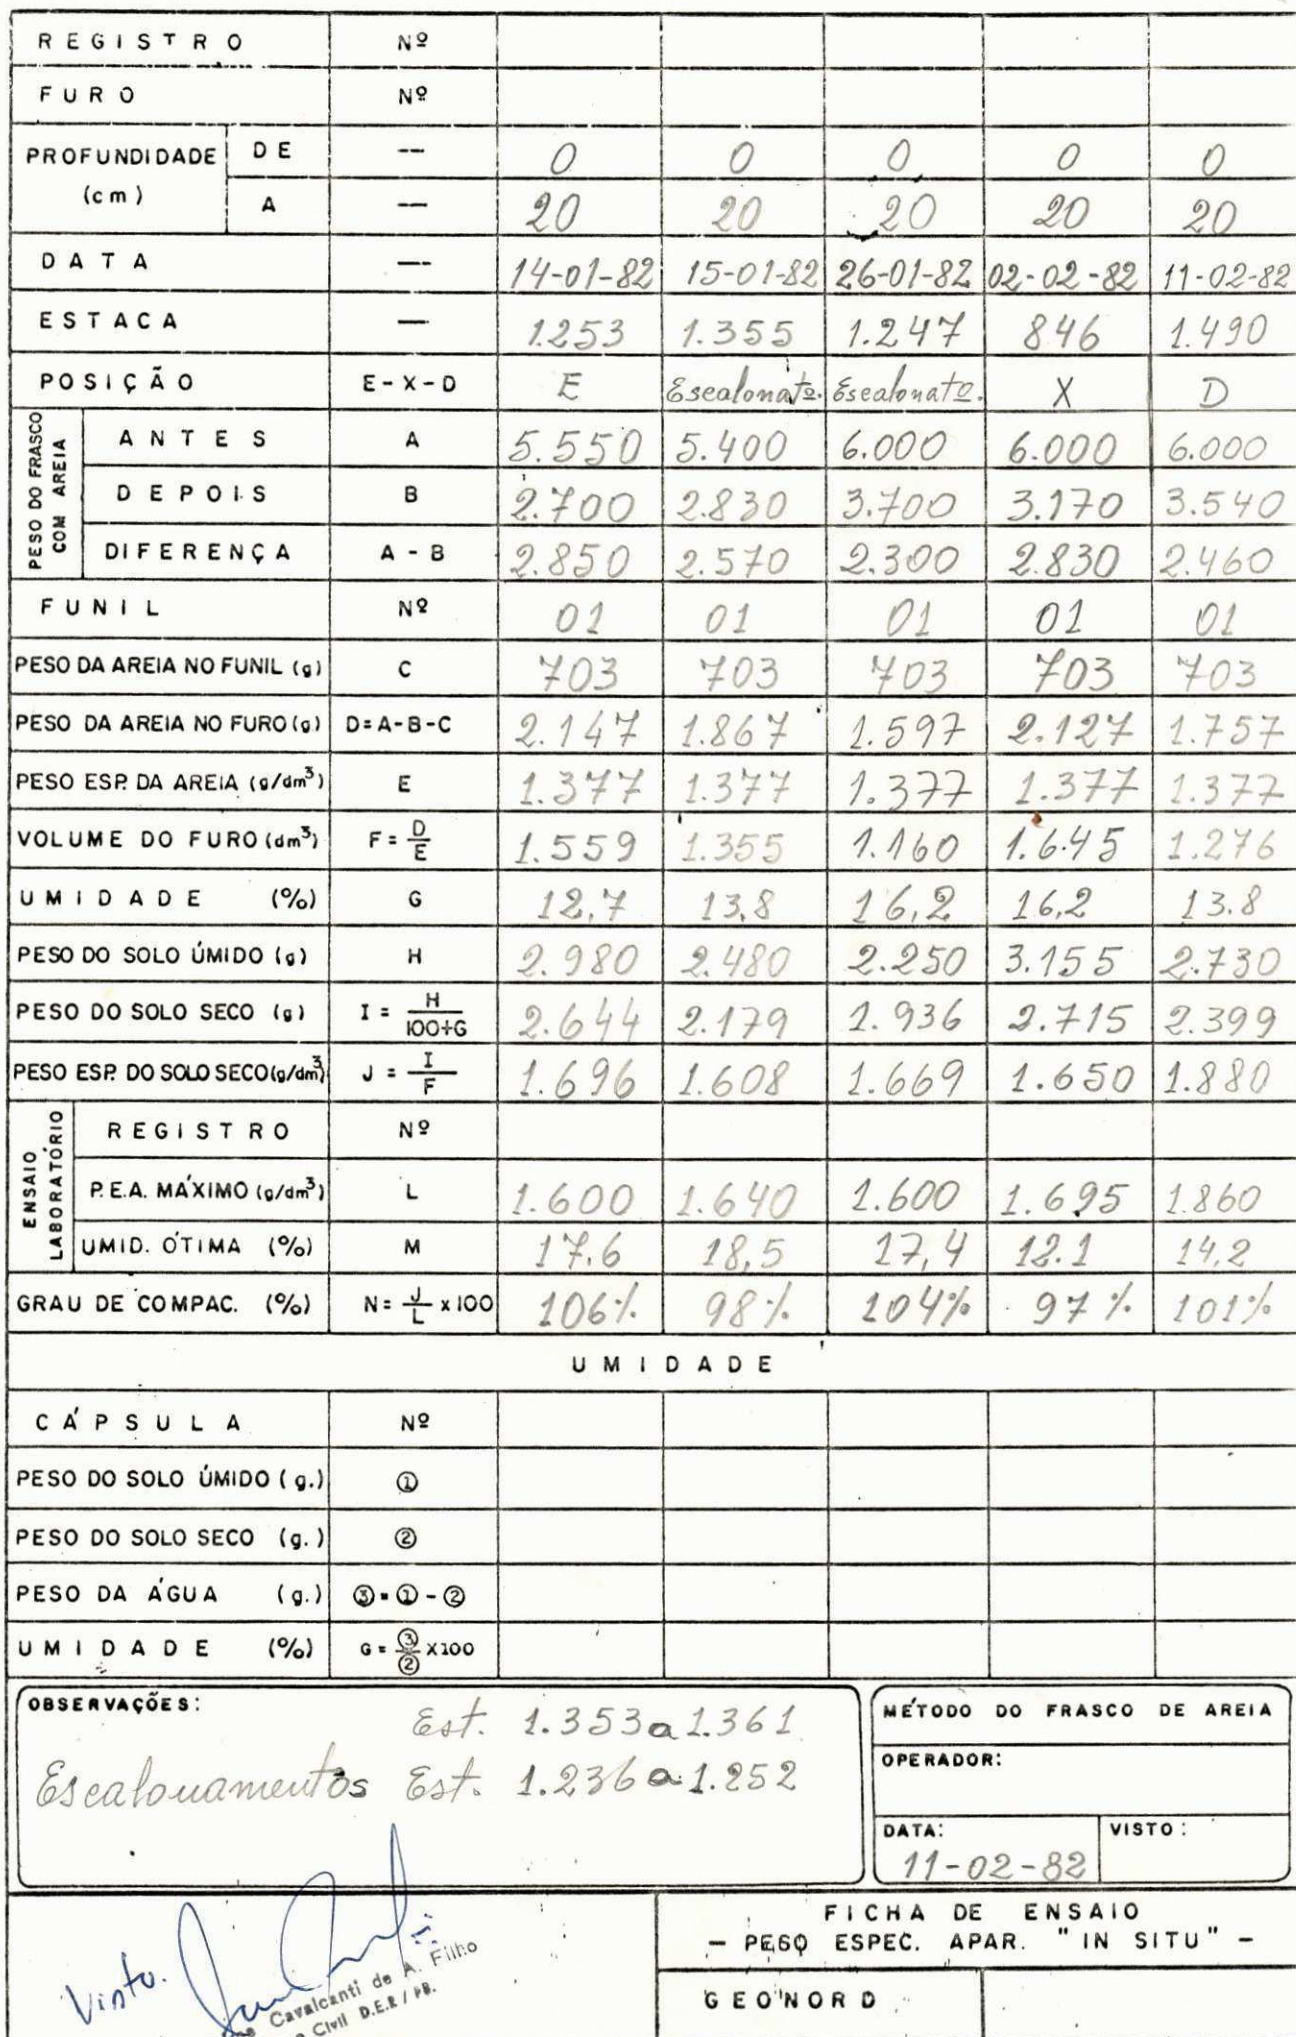 REGISTRO Nº
FURO Nº
PROFUNDIDADE (cm) DE — 0 0 0 0 0
A — 20 20 20 20 20
DATA — 14-01-82 15-01-82 26-01-82 02-02-82 11-02-82
ESTACA — 1253 1.355 1.247 846 1.490
POSIÇÃO E-X-D E Escalonatº. Escalonatº. X D
PESO DO FRASCO COM AREIA
ANTES A 5.550 5.400 6.000 6.000 6.000
DEPOIS B 2.700 2.830 3.700 3.170 3.540
DIFERENÇA A - B 2.850 2.570 2.300 2.830 2.460
FUNIL Nº 01 01 01 01 01
PESO DA AREIA NO FUNIL (g) C 703 703 703 703 703
PESO DA AREIA NO FURO (g) D=A-B-C 2.147 1.867 1.597 2.127 1.757
PESO ESP. DA AREIA (g/dm³) E 1.377 1.377 1.377 1.377 1.377
VOLUME DO FURO (dm³) F = D/E 1.559 1.355 1.160 1.645 1.276
UMIDADE (%) G 12,7 13,8 16,2 16,2 13.8
PESO DO SOLO ÚMIDO (g) H 2.980 2.480 2.250 3.155 2.730
PESO DO SOLO SECO (g) I = H/100+G 2.644 2.179 1.936 2.715 2.399
PESO ESP. DO SOLO SECO (g/dm³) J = I/F 1.696 1.608 1.669 1.650 1.880
ENSAIO LABORATÓRIO
REGISTRO Nº
P.E.A. MÁXIMO (g/dm³) L 1.600 1.640 1.600 1.695 1860
UMID. ÓTIMA (%) M 17.6 18,5 17,4 12.1 14,2
GRAU DE COMPAC. (%) N = J/L x 100 106% 98% 104% 97% 101%
UMIDADE
CÁPSULA Nº
PESO DO SOLO ÚMIDO (g.) ①
PESO DO SOLO SECO (g.) ②
PESO DA ÁGUA (g.) ③=①-②
UMIDADE (%) G = ③/② X100
OBSERVAÇÕES:
Est. 1.353 a 1.361
Escalonamentos Est. 1.236 a 1.252
MÉTODO DO FRASCO DE AREIA
OPERADOR:
DATA: 11-02-82
VISTO:
Visto.
Cavalcanti de A. Filho
Civil D.E.R / PB.
FICHA DE ENSAIO
— PESO ESPEC. APAR. "IN SITU" —
GEONORD